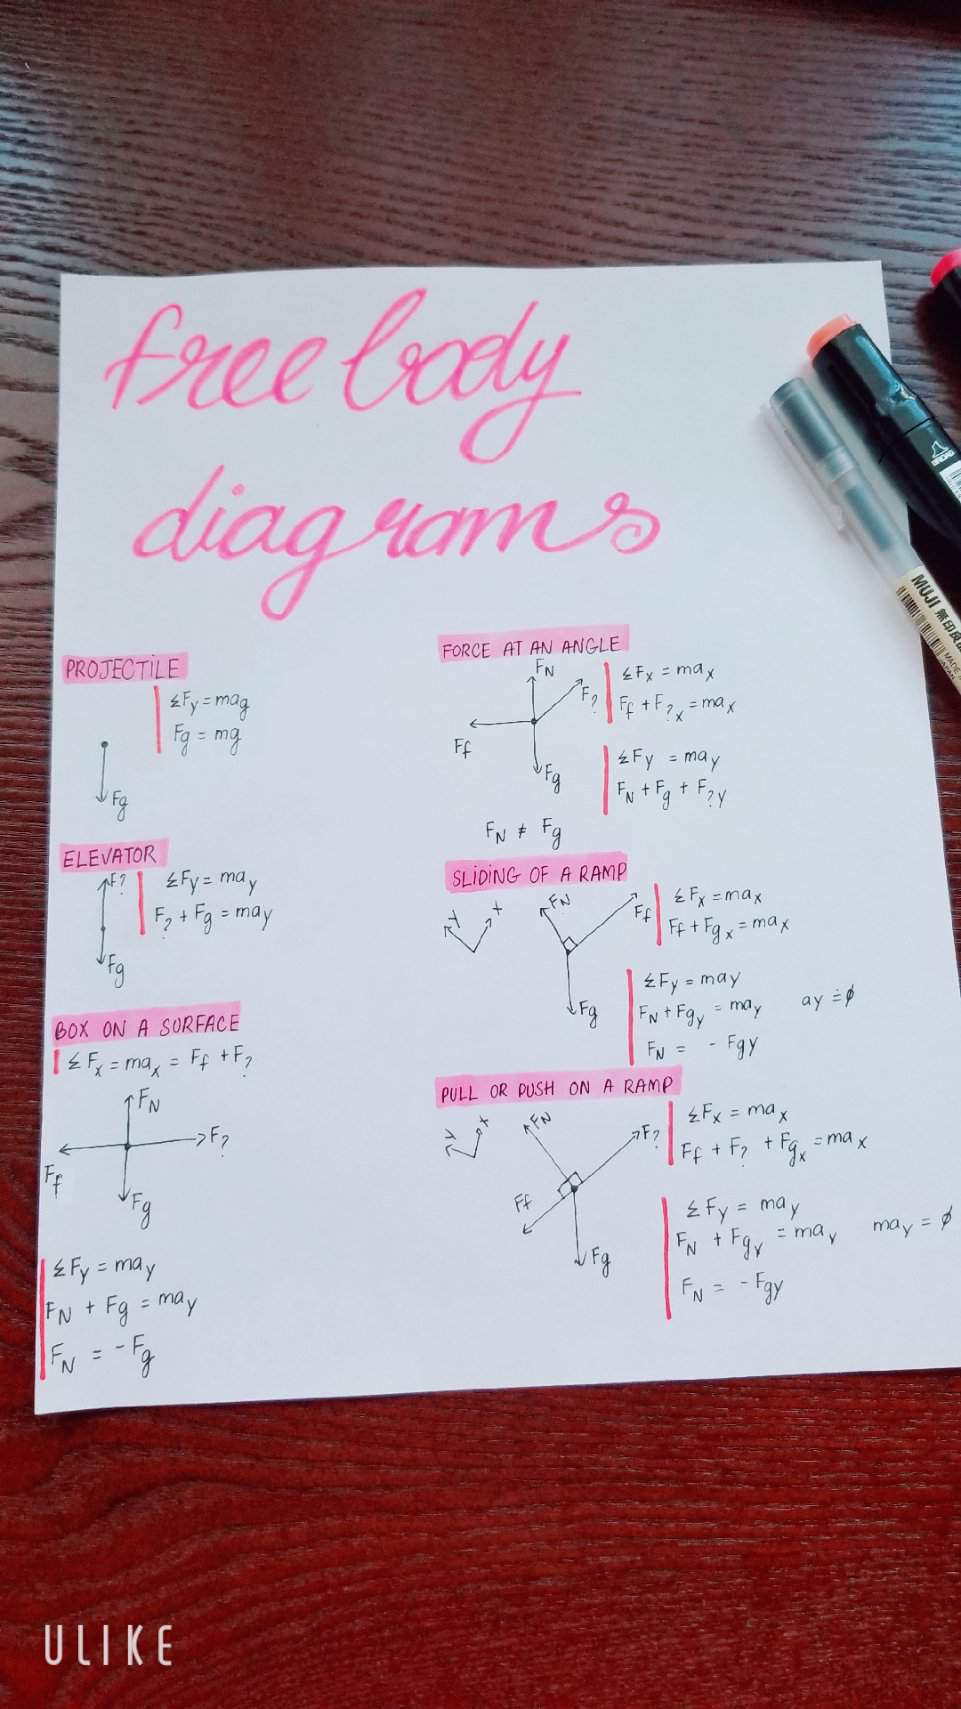 free body
diagrams
PROJECTILE
ΣFy = mag
Fg = mg
Fg
ELEVATOR
F?
ΣFy = may
F? + Fg = may
Fg
BOX ON A SURFACE
ΣFx = max = Ff + F?
FN
F?
Ff
Fg
ΣFy = may
FN + Fg = may
FN = - Fg
FORCE AT AN ANGLE
FN
F?
Ff
Fg
ΣFx = max
Ff + F?x = max
ΣFy = may
FN + Fg + F?y
FN ≠ Fg
SLIDING OF A RAMP
y x
FN
Ff
Fg
ΣFx = max
Ff + Fgx = max
ΣFy = may
FN + Fgy = may ay = ∅
FN = - Fgy
PULL OR PUSH ON A RAMP
y x
FN
F?
Ff
Fg
ΣFx = max
Ff + F? + Fgx = max
ΣFy = may
FN + Fgy = may may = ∅
FN = - Fgy
MUJI 無印良品
MADE
JAPAN
ULIKE